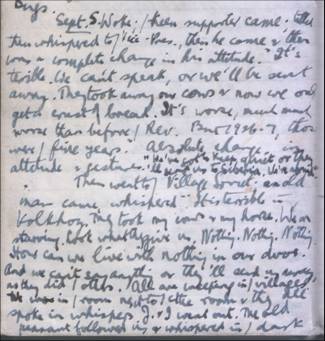 Days.
Sept. 5. Woke. Keen supporter came. talked
then whispered to Vice-Pres., then he came & there
was a complete change in his attitude. "It's
terrible. We can't speak, or we'll be sent
away. They took away our cows & now we only
get a crust of bread. It's worse, much much
worse than before / Rev. But 1926-7, those
were / fine years. Absolute change in
attitude & gesture. "We've got to keep quiet or they
'll send us to Siberia.
Then went to / Village Soviet. an old
man came, whispered: It is terrible in
Kolkhoz. They took my cows & my horse. We are
starving. Look what they give us. Nothing. Nothing. Nothing
How can we live with nothing in our dvor.
And we can't say anything or they'll send us away
as they did / others. All are weeping in / villages,
in / room next to / the room & they all
spoke in whispers. J. & I went out. The old
peasant followed us & whispered in / dark